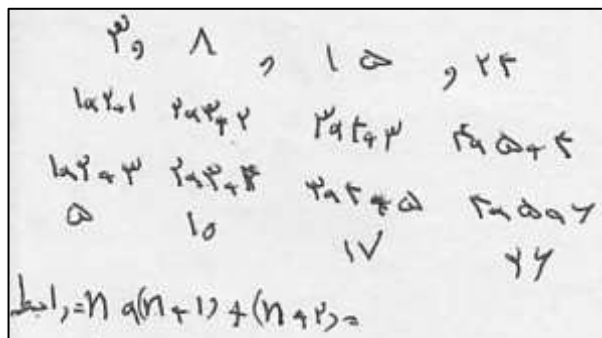 ۳, ۸, ۱۵, ۲۴
۱×۲+۱ ۲×۳+۲ ۳×۴+۳ ۴×۵+۴
۱×۲+۳ ۲×۳+۴ ۳×۴+۵ ۴×۵+۶
۵ ۱۰ ۱۷ ۲۶
رابطه = n×(n+۱)+(n+۲)=